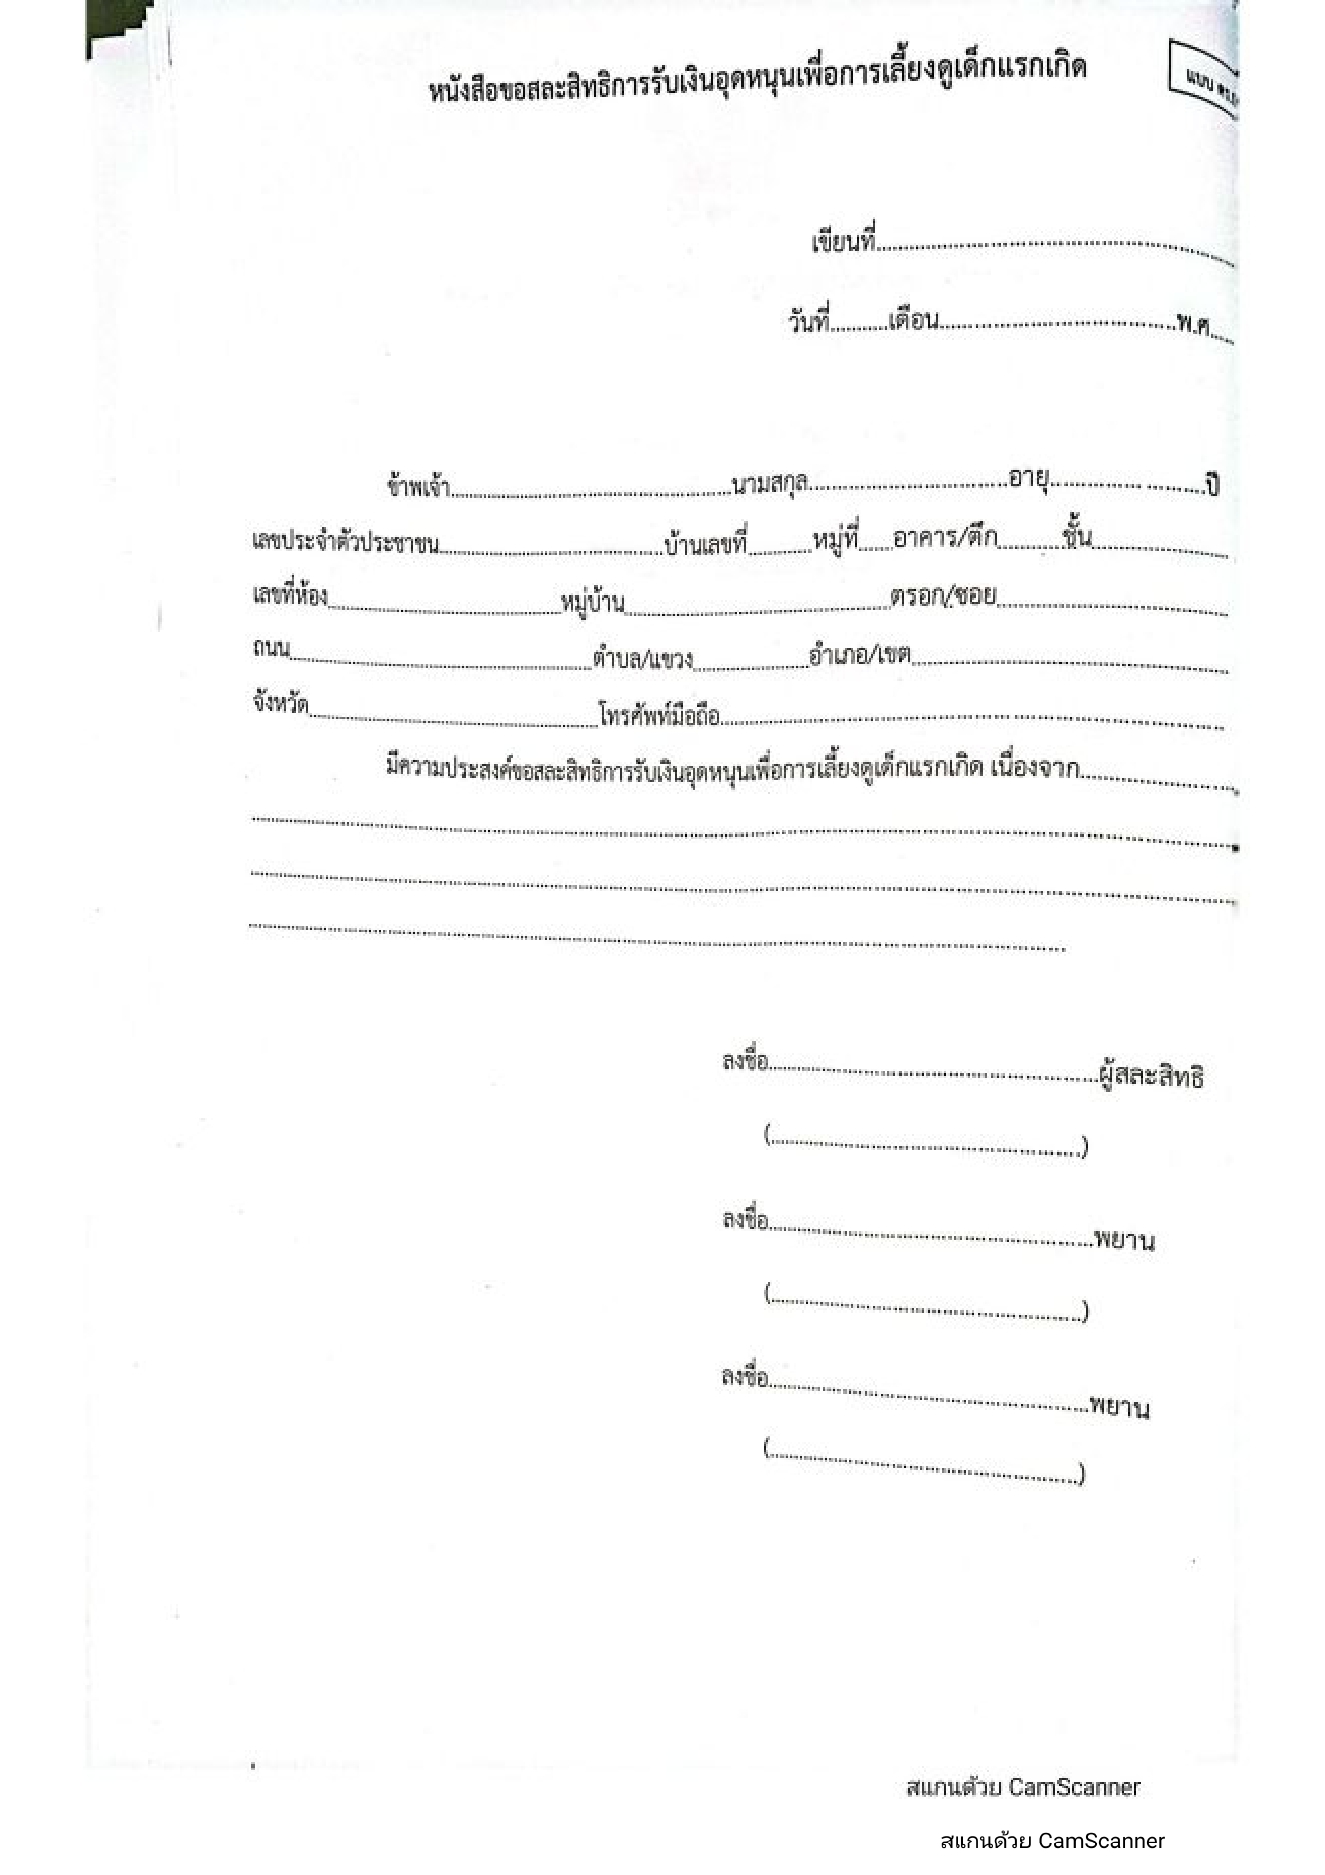 หนังสือขอสละสิทธิการรับเงินอุดหนุนเพื่อการเลี้ยงดูเด็กแรกเกิด
แบบ
เขียนที่..............................................................
วันที่..........เดือน..........................................พ.ศ.....
ข้าพเจ้า..................................................นามสกุล....................................อายุ............................ปี
เลขประจำตัวประชาชน........................................บ้านเลขที่...........หมู่ที่......อาคาร/ตึก...........ชั้น........................
เลขที่ห้อง..........................................หมู่บ้าน................................................ตรอก/ซอย..........................................
ถนน......................................................ตำบล/แขวง....................อำเภอ/เขต........................................................
จังหวัด....................................................โทรศัพท์มือถือ..........................................................................................
มีความประสงค์ขอสละสิทธิการรับเงินอุดหนุนเพื่อการเลี้ยงดูเด็กแรกเกิด เนื่องจาก............................
....................................................................................................................................................................
....................................................................................................................................................................
........................................................................................................................................
ลงชื่อ............................................................ผู้สละสิทธิ
(........................................................)
ลงชื่อ............................................................พยาน
(........................................................)
ลงชื่อ............................................................พยาน
(........................................................)
สแกนด้วย CamScanner
สแกนด้วย CamScanner